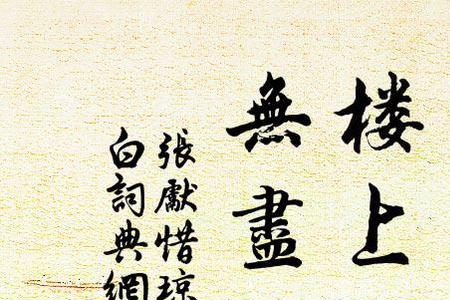 楼上
無盡
張獻惜琼
白詞典網